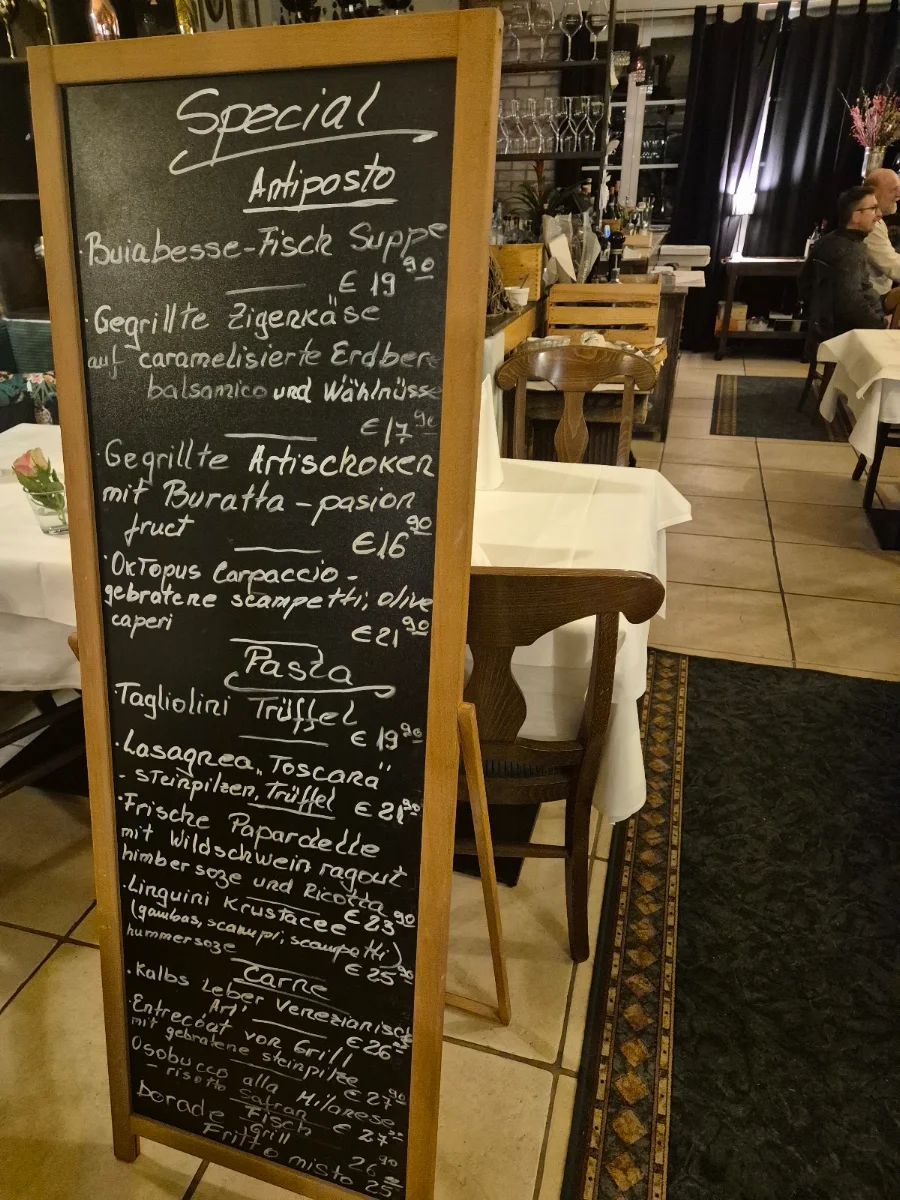 Special
Antiposto
· Buiabesse-Fisch Suppe
€ 19 90
· Gegrillte Zigenkäse
auf caramelisierte Erdber
balsamico und Wählnüsse
€ 17 90
· Gegrillte Artischoken
mit Buratta - pasion
fruct
€ 16 90
· Oktopus Carpaccio -
gebratene scampetti, olive
caperi
€ 21 90
Pasta
· Tagliolini Trüffel
€ 19 90
· Lasagnea „Toscana"
- steinpilzen, Trüffel € 21 90
· Frische Papardelle
mit Wildschwein ragout
himbersoze und Ricotta
€ 23 90
· Linguini Krustacee
(gambas, scampi, scampetti)
hummersoze
€ 25 90
Carne
· Kalbs Leber Venezianisch
Art
€ 26 90
· Entrecoat vor Grill
mit gebratene steinpilze
€ 27 90
Osobucco alla Milanese
- risotto Safran
€ 27 90
Fisch
Dorade Grill
26 90
Fritto misto 25 90